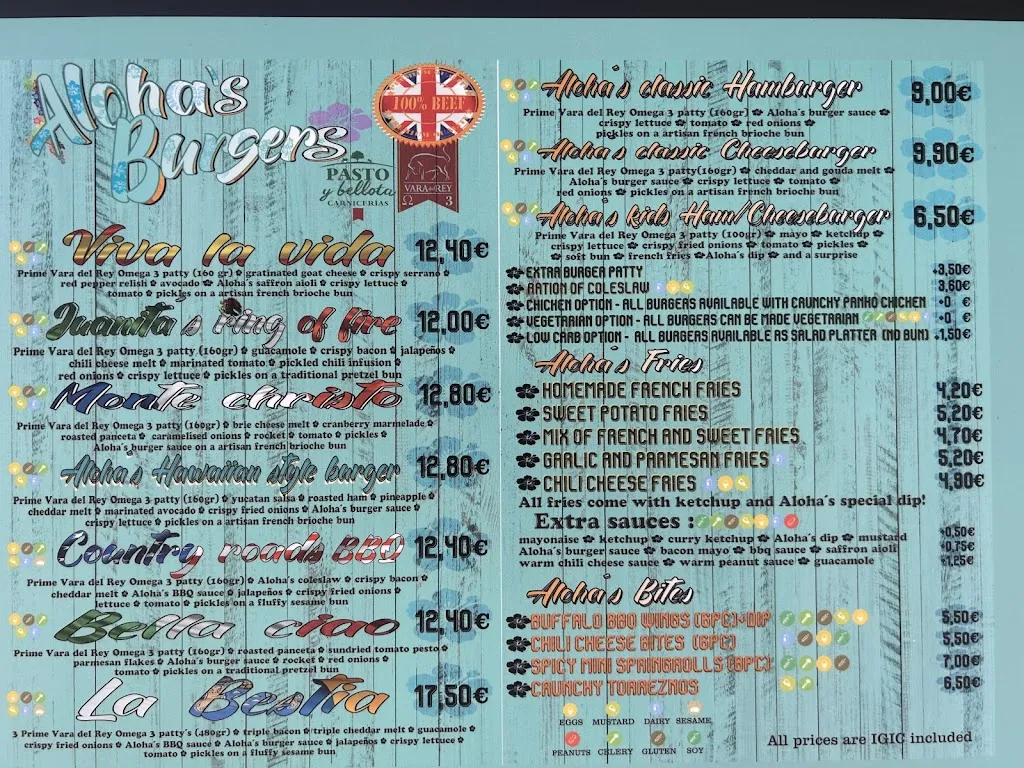 Aloha's
Burgers
100% BEEF
PASTO
y bellota
CARNICERÍAS
VARA DEL REY
Ω 3
Viva la vida 12,40€
Prime Vara del Rey Omega 3 patty (160 gr) gratinated goat cheese crispy serrano
red pepper relish avocado Aloha's saffron aioli crispy lettuce
tomato pickles on an artisan french brioche bun
Juanita's Ring of fire 12,00€
Prime Vara del Rey Omega 3 patty (160gr) guacamole crispy bacon jalapeños
chili cheese melt marinated tomato pickled chili infusion
red onions crispy lettuce pickles on a traditional pretzel bun
Monte christo 12,80€
Prime Vara del Rey Omega 3 patty (160gr) brie cheese melt cranberry marmelade
roasted panceta caramelised onions rocket tomato pickles
Aloha's burger sauce on an artisan french brioche bun
Aloha's Hawaiian style burger 12,80€
Prime Vara del Rey Omega 3 patty (160gr) yucatan salsa roasted ham pineapple
cheddar melt marinated avocado crispy fried onions Aloha's burger sauce
crispy lettuce pickles on an artisan french brioche bun
Country roads BBQ 12,40€
Prime Vara del Rey Omega 3 patty (160gr) Aloha's coleslaw crispy bacon
cheddar melt Aloha's BBQ sauce jalapeños crispy fried onions
lettuce tomato pickles on a fluffy sesame bun
Bella ciao 12,40€
Prime Vara del Rey Omega 3 patty (160gr) roasted panceta sundried tomato pesto
parmesan flakes Aloha's burger sauce rocket red onions
tomato pickles on a traditional pretzel bun
La Bestia 17,50€
3 Prime Vara del Rey Omega 3 patty's (480gr) triple bacon triple cheddar melt guacamole
crispy fried onions Aloha's BBQ sauce Aloha's burger sauce jalapeños crispy lettuce
tomato pickles on a fluffy sesame bun
Aloha's classic Hamburger 9,00€
Prime Vara del Rey Omega 3 patty (160gr) Aloha's burger sauce
crispy lettuce tomato red onions
pickles on a artisan french brioche bun
Aloha's classic Cheeseburger 9,90€
Prime Vara del Rey Omega 3 patty(160gr) cheddar and gouda melt
Aloha's burger sauce crispy lettuce tomato
red onions pickles on a artisan french brioche bun
Aloha's kids Ham/Cheeseburger 6,50€
Prime Vara del Rey Omega 3 patty (100gr) mayo ketchup
crispy lettuce crispy fried onions tomato pickles
soft bun french fries Aloha's dip and a surprise
EXTRA BURGER PATTY +3,50€
RATION OF COLESLAW 3,60€
CHICKEN OPTION - ALL BURGERS AVAILABLE WITH CRUNCHY PANKO CHICKEN +0 €
VEGETARIAN OPTION - ALL BURGERS CAN BE MADE VEGETARIAN +0 €
LOW CARB OPTION - ALL BURGERS AVAILABLE AS SALAD PLATTER (NO BUN) +1,50€
Aloha's Fries
HOMEMADE FRENCH FRIES 4,20€
SWEET POTATO FRIES 5,20€
MIX OF FRENCH AND SWEET FRIES 4,70€
GARLIC AND PARMESAN FRIES 5,20€
CHILI CHEESE FRIES 4,90€
All fries come with ketchup and Aloha's special dip!
Extra sauces :
mayonaise ketchup curry ketchup Aloha's dip mustard +0,50€
Aloha's burger sauce bacon mayo bbq sauce saffron aioli +0,75€
warm chili cheese sauce warm peanut sauce guacamole +1,25€
Aloha's Bites
BUFFALO BBQ WINGS (6PC)+DIP 5,50€
CHILI CHEESE BITES (6PC) 5,50€
SPICY MINI SPRINGROLLS (8PC) 7,00€
CRUNCHY TORREZNOS 6,50€
EGGS MUSTARD DAIRY SESAME
PEANUTS CELERY GLUTEN SOY
All prices are IGIC included